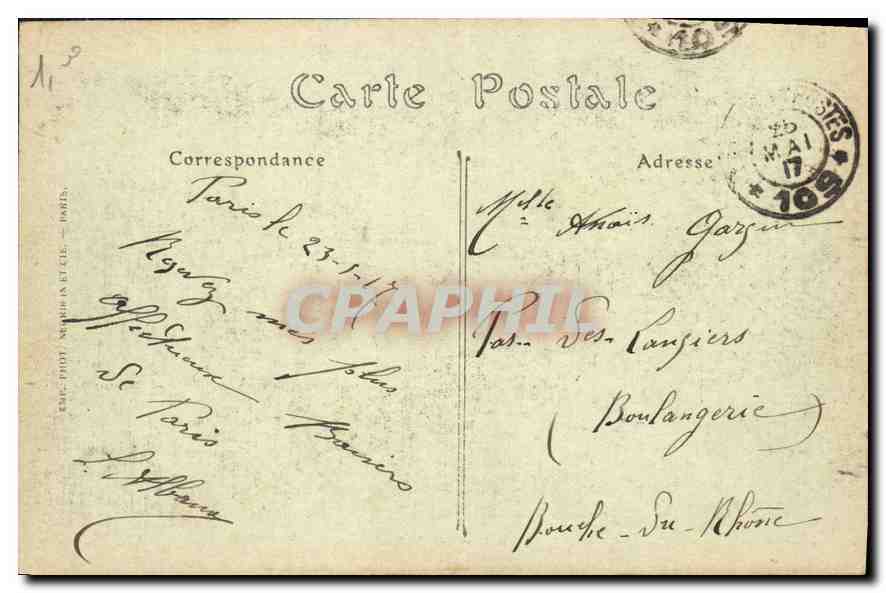 1,3
Carte Postale
Correspondance
Adresse
25
MAI
17
* 109 *
EMP. PHOT. NEURDEIN ET CIE. — PARIS.
Paris le 23-5-17
Recevez mes plus
affectueux Baisers
de Paris
Melle Anaïs
Pas-des-Lanciers
(Boulangerie)
Bouche-du-Rhône
CPAPHIL